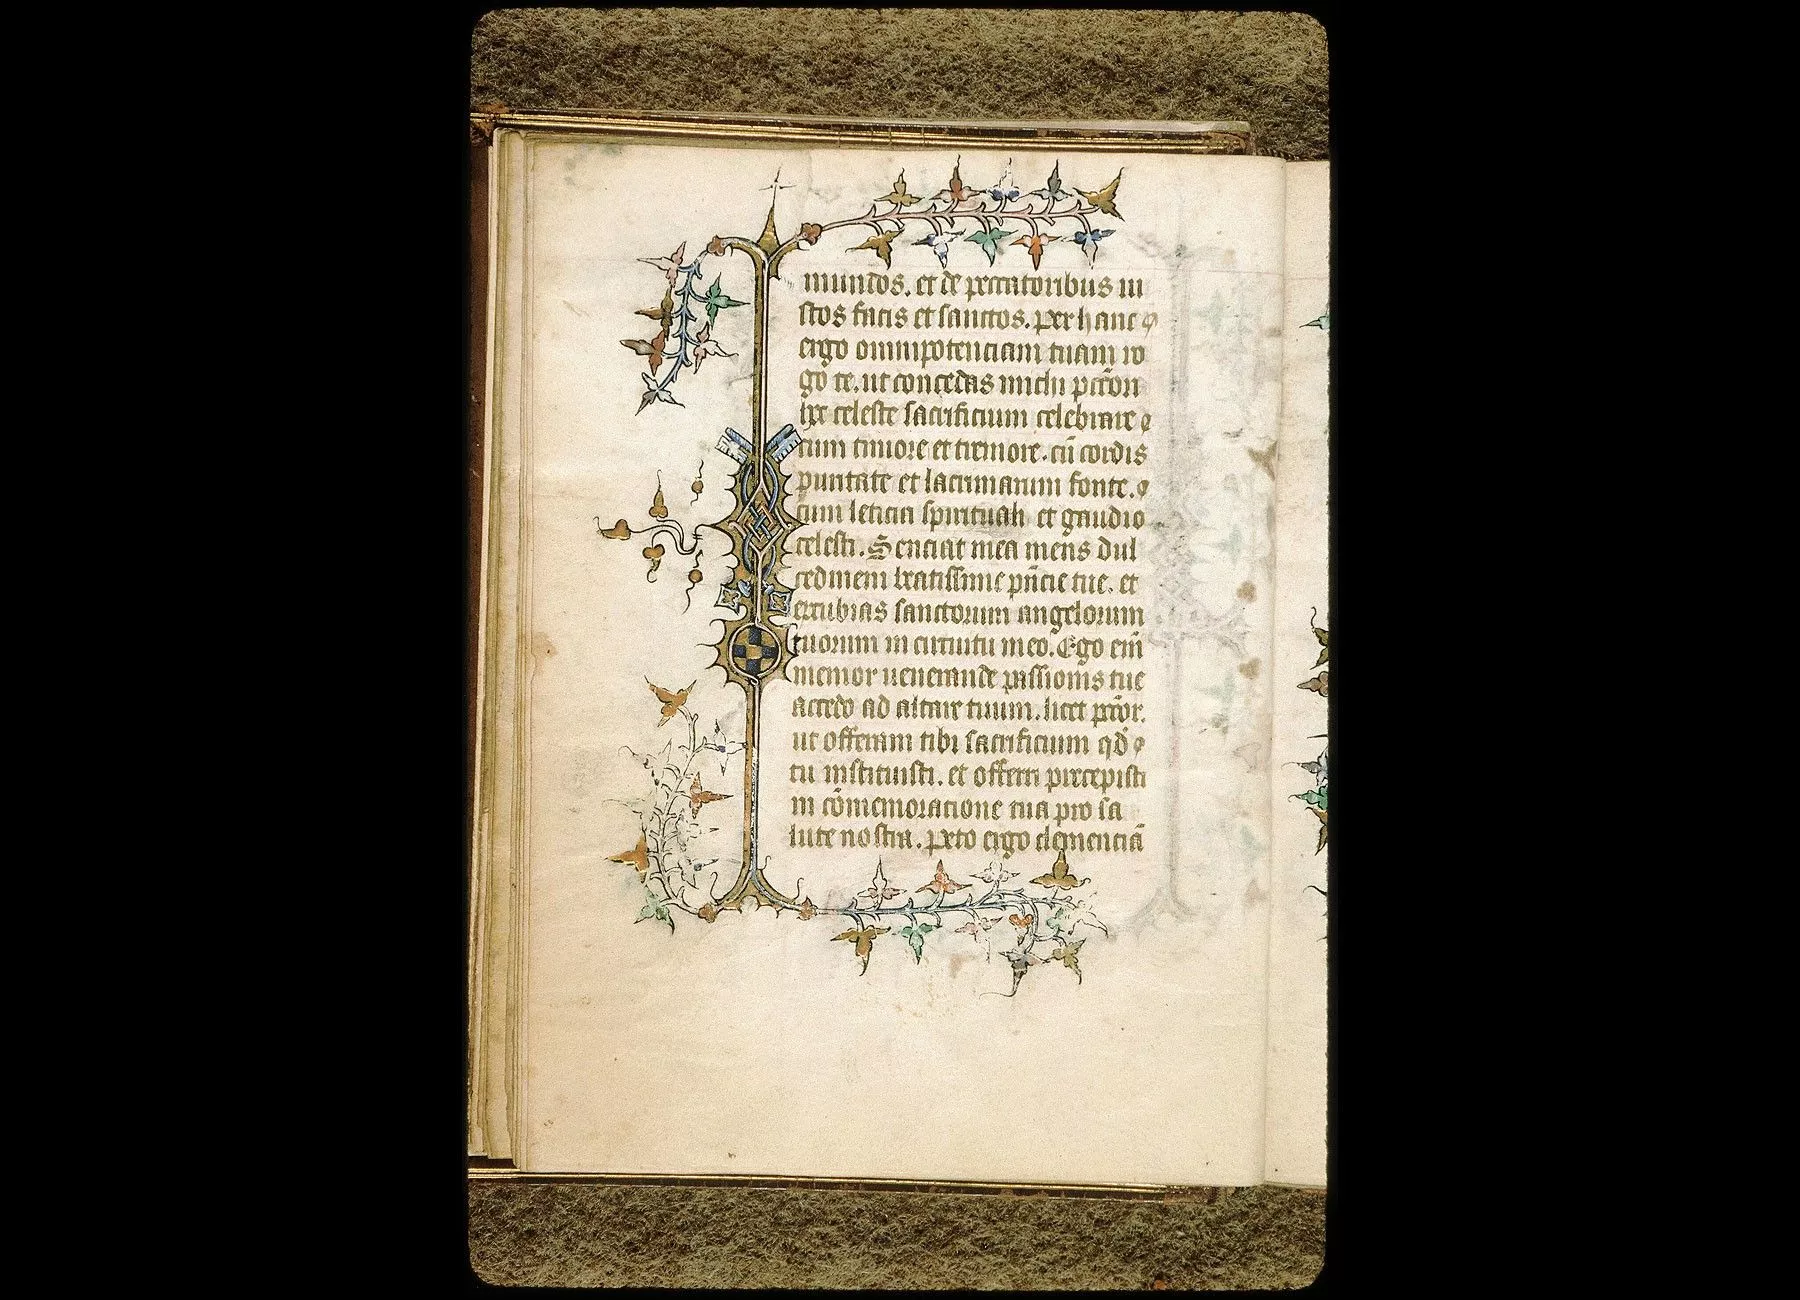 mundos. et de peccatoribus iu
stos facis et sanctos. per hanc
ergo omnipotenciam tuam ro
go te. ut concedas michi pctori
hic celeste sacrificium celebrare
cum timore et tremore. cū cordis
puritate et lacrimarum fonte.
cum leticia spirituali et gaudio
celesti. Senciat mea mens dul
cedinem beatissime pn̄cie tue. et
excubias sanctorum angelorum
tuorum in circuitu meo. Ego eni̅
memor uenerande passionis tue
accedo ad altare tuum. licet pctor.
ut offeram tibi sacrificium qd̄
tu instituisti. et offerri precepisti
in cōmemoratione tua pro sa
lute nostra. peto ergo clementiā